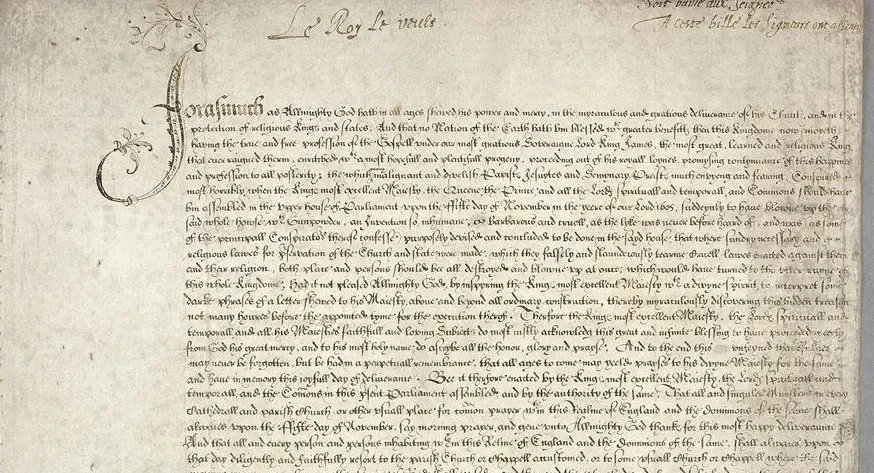 Soit baille aux Seigneurs
Le Roy le veult
A ceste bille les Signeurs ont assentus
Forasmuch as Allmighty God hath in all ages shewed his power and mercy, in the myraculous and gratious deliverance of his Church, and in the
protection of religious Kinges and states, And that no Nation of the Earth hath bin blessed wth greater benefitts then this Kingdome now enioyeth
having the true and free profession of the Gospell under our most gratious Soveraigne Lord King James, the most great, learned and religious King
that ever raigned therin, enritched wth a most hopefull and plentifull progeny, proceding out of his royall loynes, promysing contynuance of this happines
and profession to all posterity: the which malignant and divelish Papists, Jesuytes and Semynary Preists much envyeng and fearing, Conspired
most horribly, when the Kinges most excellent Maiesty, the Queene the Prince and all the Lordes spirituall and temporall, and Commons should have
bin assembled in the Upper house of Parliament upon the Fifte day of November in the yeere of our Lord 1605, suddenly to have blowne up the
said whole howse wth Gunpowder, an Invention so inhumane, barbarous and cruell, as the lyke was never before heard of, and was as some
of the principall Conspirators therof confesse purposely devised and concluded to be done in the sayd house, that where sundry necessary and
religious lawes for pservation of the Church and state were made, which they falsely and slaunderously tearme Cruell lawes enacted against them
and their religion, both place and persons should bee all destroyed and blowne up at once, which would have turned to the utter ruyne of
this whole Kingdome, Had it not pleased Allmighty God, by inspyring the Kinges most excellent Maiesty wth a divyne spirit, to interpret some
darke phrases of a letter shewed to his Maiesty, above and beyond all ordinary construction, thereby myraculously discovering this hidden treason
not many howres before the appointed tyme for the execution therof. Therfore the Kinges most excellent Maiesty, the Lordes spirituall and
temporall and all his Maiesties faithfull and loving Subiects do most iustly acknowledg this great and infinite blessing to have proceded meerly
from God his great mercy, and to his most holy name do ascrybe all the honor, glory and prayse. And to the end this unfeyned thankfullnes
may never be forgotten, but be had in a perpetuall remembrance, that all ages to come may yeeld prayses to his divyne Maiesty for the same
and have in memory this ioyfull day of deliverance. Bee it therfore enacted by the Kinges most excellent Maiesty, the Lordes spirituall and
temporall, and the Comons in this psent Parliament assembled and by the authority of the same, That all and singuler Ministers in every
Cathedrall and parish Church, or other usuall place for comon prayer wthin this Realme of England and the Dominions of the same shall
alwaies upon the Fifte day of November, say morning prayer, and geve unto Allmighty God thankes for this most happy deliverance
And that all and every person and persons inhabiting wthin this Relme of England and the Dominions of the same, shall alwaies upon
that day diligently and faithfully resort to the parish Church or Chappell accustomed, or to some usuall Church or Chappell where the said